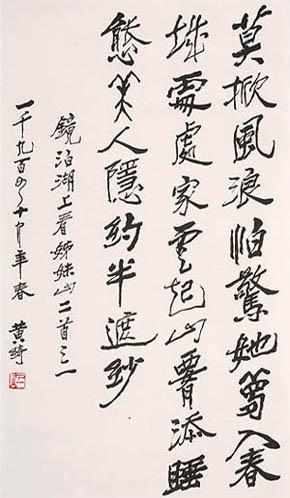 莫掀風浪怕驚她夢入春
城處處家雲起山霽添睡
態美人隱約半遮紗
鏡泊湖上看姊妹山二首之一
一千九百八十年春 黃綺